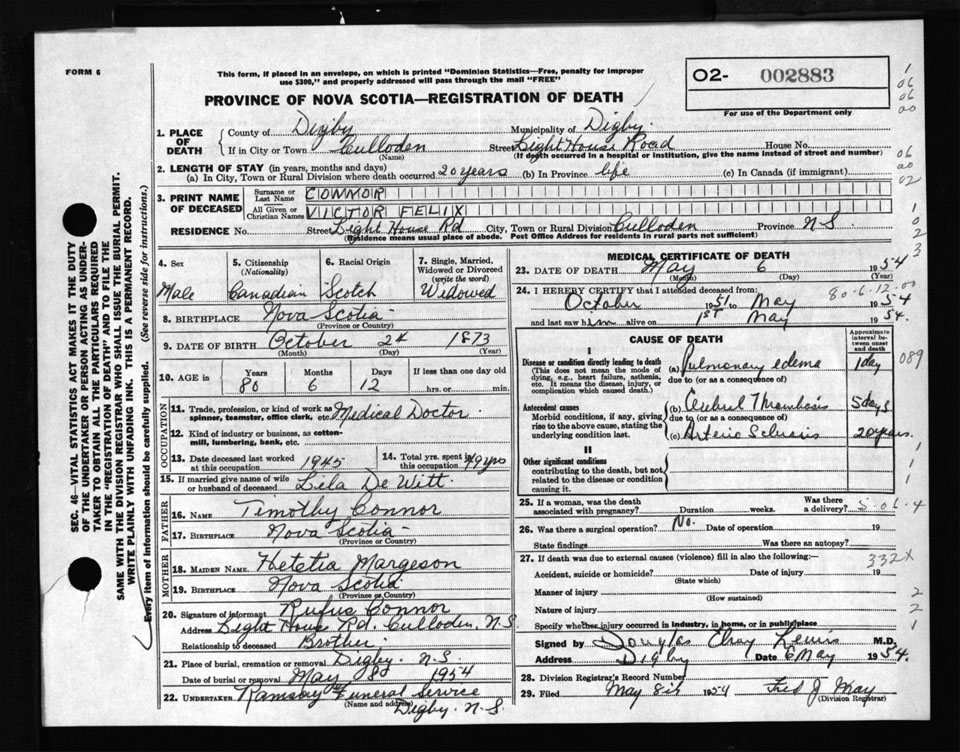 FORM 6
This form, if placed in an envelope, on which is printed "Dominion Statistics—Free, penalty for improper
use $300," and properly addressed will pass through the mail "FREE"
O2- 002883
For use of the Department only
PROVINCE OF NOVA SCOTIA—REGISTRATION OF DEATH
1. PLACE OF DEATH { County of Digby Municipality of Digby
If in City or Town Culloden (Name) Street Light House Road House No.
(If death occurred in a hospital or institution, give the name instead of street and number)
2. LENGTH OF STAY (in years, months and days)
(a) In City, Town or Rural Division where death occurred 20 years (b) In Province life (c) In Canada (if immigrant)
3. PRINT NAME OF DECEASED { Surname or Last Name CONNOR
All Given or Christian Names VICTOR FELIX
RESIDENCE No. Street Light House Rd City, Town or Rural Division Culloden Province N.S.
(Residence means usual place of abode. Post Office Address for residents in rural parts not sufficient)
4. Sex Male
5. Citizenship (Nationality) Canadian
6. Racial Origin Scotch
7. Single, Married, Widowed or Divorced (write the word) Widowed
8. BIRTHPLACE Nova Scotia
(Province or Country)
9. DATE OF BIRTH October 24 1873
(Month) (Day) (Year)
10. AGE in Years 80 Months 6 Days 12 If less than one day old hrs. or min.
OCCUPATION
11. Trade, profession, or kind of work as spinner, teamster, office clerk, etc. Medical Doctor
12. Kind of industry or business, as cotton-mill, lumbering, bank, etc.
13. Date deceased last worked at this occupation 1945
14. Total yrs. spent in this occupation 49 yrs
15. If married give name of wife or husband of deceased Lila De Witt
FATHER
16. NAME Timothy Connor
17. BIRTHPLACE Nova Scotia
(Province or Country)
MOTHER
18. MAIDEN NAME Hetetia Margeson
19. BIRTHPLACE Nova Scotia
(Province or Country)
20. Signature of informant Rufus Connor
Address Light House Rd. Culloden, N.S.
Relationship to deceased Brother
21. Place of burial, cremation or removal Digby. N.S.
Date of burial or removal May 8th 1954
22. UNDERTAKER Ramsay Funeral Service
(Name and address) Digby. N.S.
MEDICAL CERTIFICATE OF DEATH
23. DATE OF DEATH May 6 1954
(Month) (Day) (Year)
80-6-12.00
24. I HEREBY CERTIFY that I attended deceased from:
October 1951 to May 1954
and last saw him alive on 1st May 1954.
CAUSE OF DEATH
Approximate interval between onset and death
I
Disease or condition directly leading to death
(This does not mean the mode of dying, e.g., heart failure, asthenia, etc. It means the disease, injury, or complication which caused death.)
(a) Pulmonary edema 1 day
089
due to (or as a consequence of)
Antecedent causes
Morbid conditions, if any, giving rise to the above cause, stating the underlying condition last.
(b) 5 days
due to (or as a consequence of)
(c) 20 years.
II
Other significant conditions
contributing to the death, but not related to the disease or condition causing it.
25. If a woman, was the death associated with pregnancy? Duration weeks. Was there a delivery?
26. Was there a surgical operation? No. Date of operation 19
State findings Was there an autopsy?
27. If death was due to external causes (violence) fill in also the following:—
332X
Accident, suicide or homicide? (State which) Date of injury 19
Manner of injury
(How sustained)
Nature of injury
Specify whether injury occurred in industry, in home, or in public place
Signed by Douglas Lewis M.D.
Address Digby Date 6 May 1954.
28. Division Registrar's Record Number
29. Filed May 8th 1954 Fred J. May
(Division Registrar)
SEC. 46—VITAL STATISTICS ACT MAKES IT THE DUTY
OF THE UNDERTAKER OR PERSON ACTING AS UNDER-
TAKER TO OBTAIN ALL THE PARTICULARS REQUIRED
IN THE "REGISTRATION OF DEATH" AND TO FILE THE
SAME WITH THE DIVISION REGISTRAR WHO SHALL ISSUE THE BURIAL PERMIT.
WRITE PLAINLY WITH UNFADING INK. THIS IS A PERMANENT RECORD.
Every item of information should be carefully supplied. (See reverse side for instructions.)